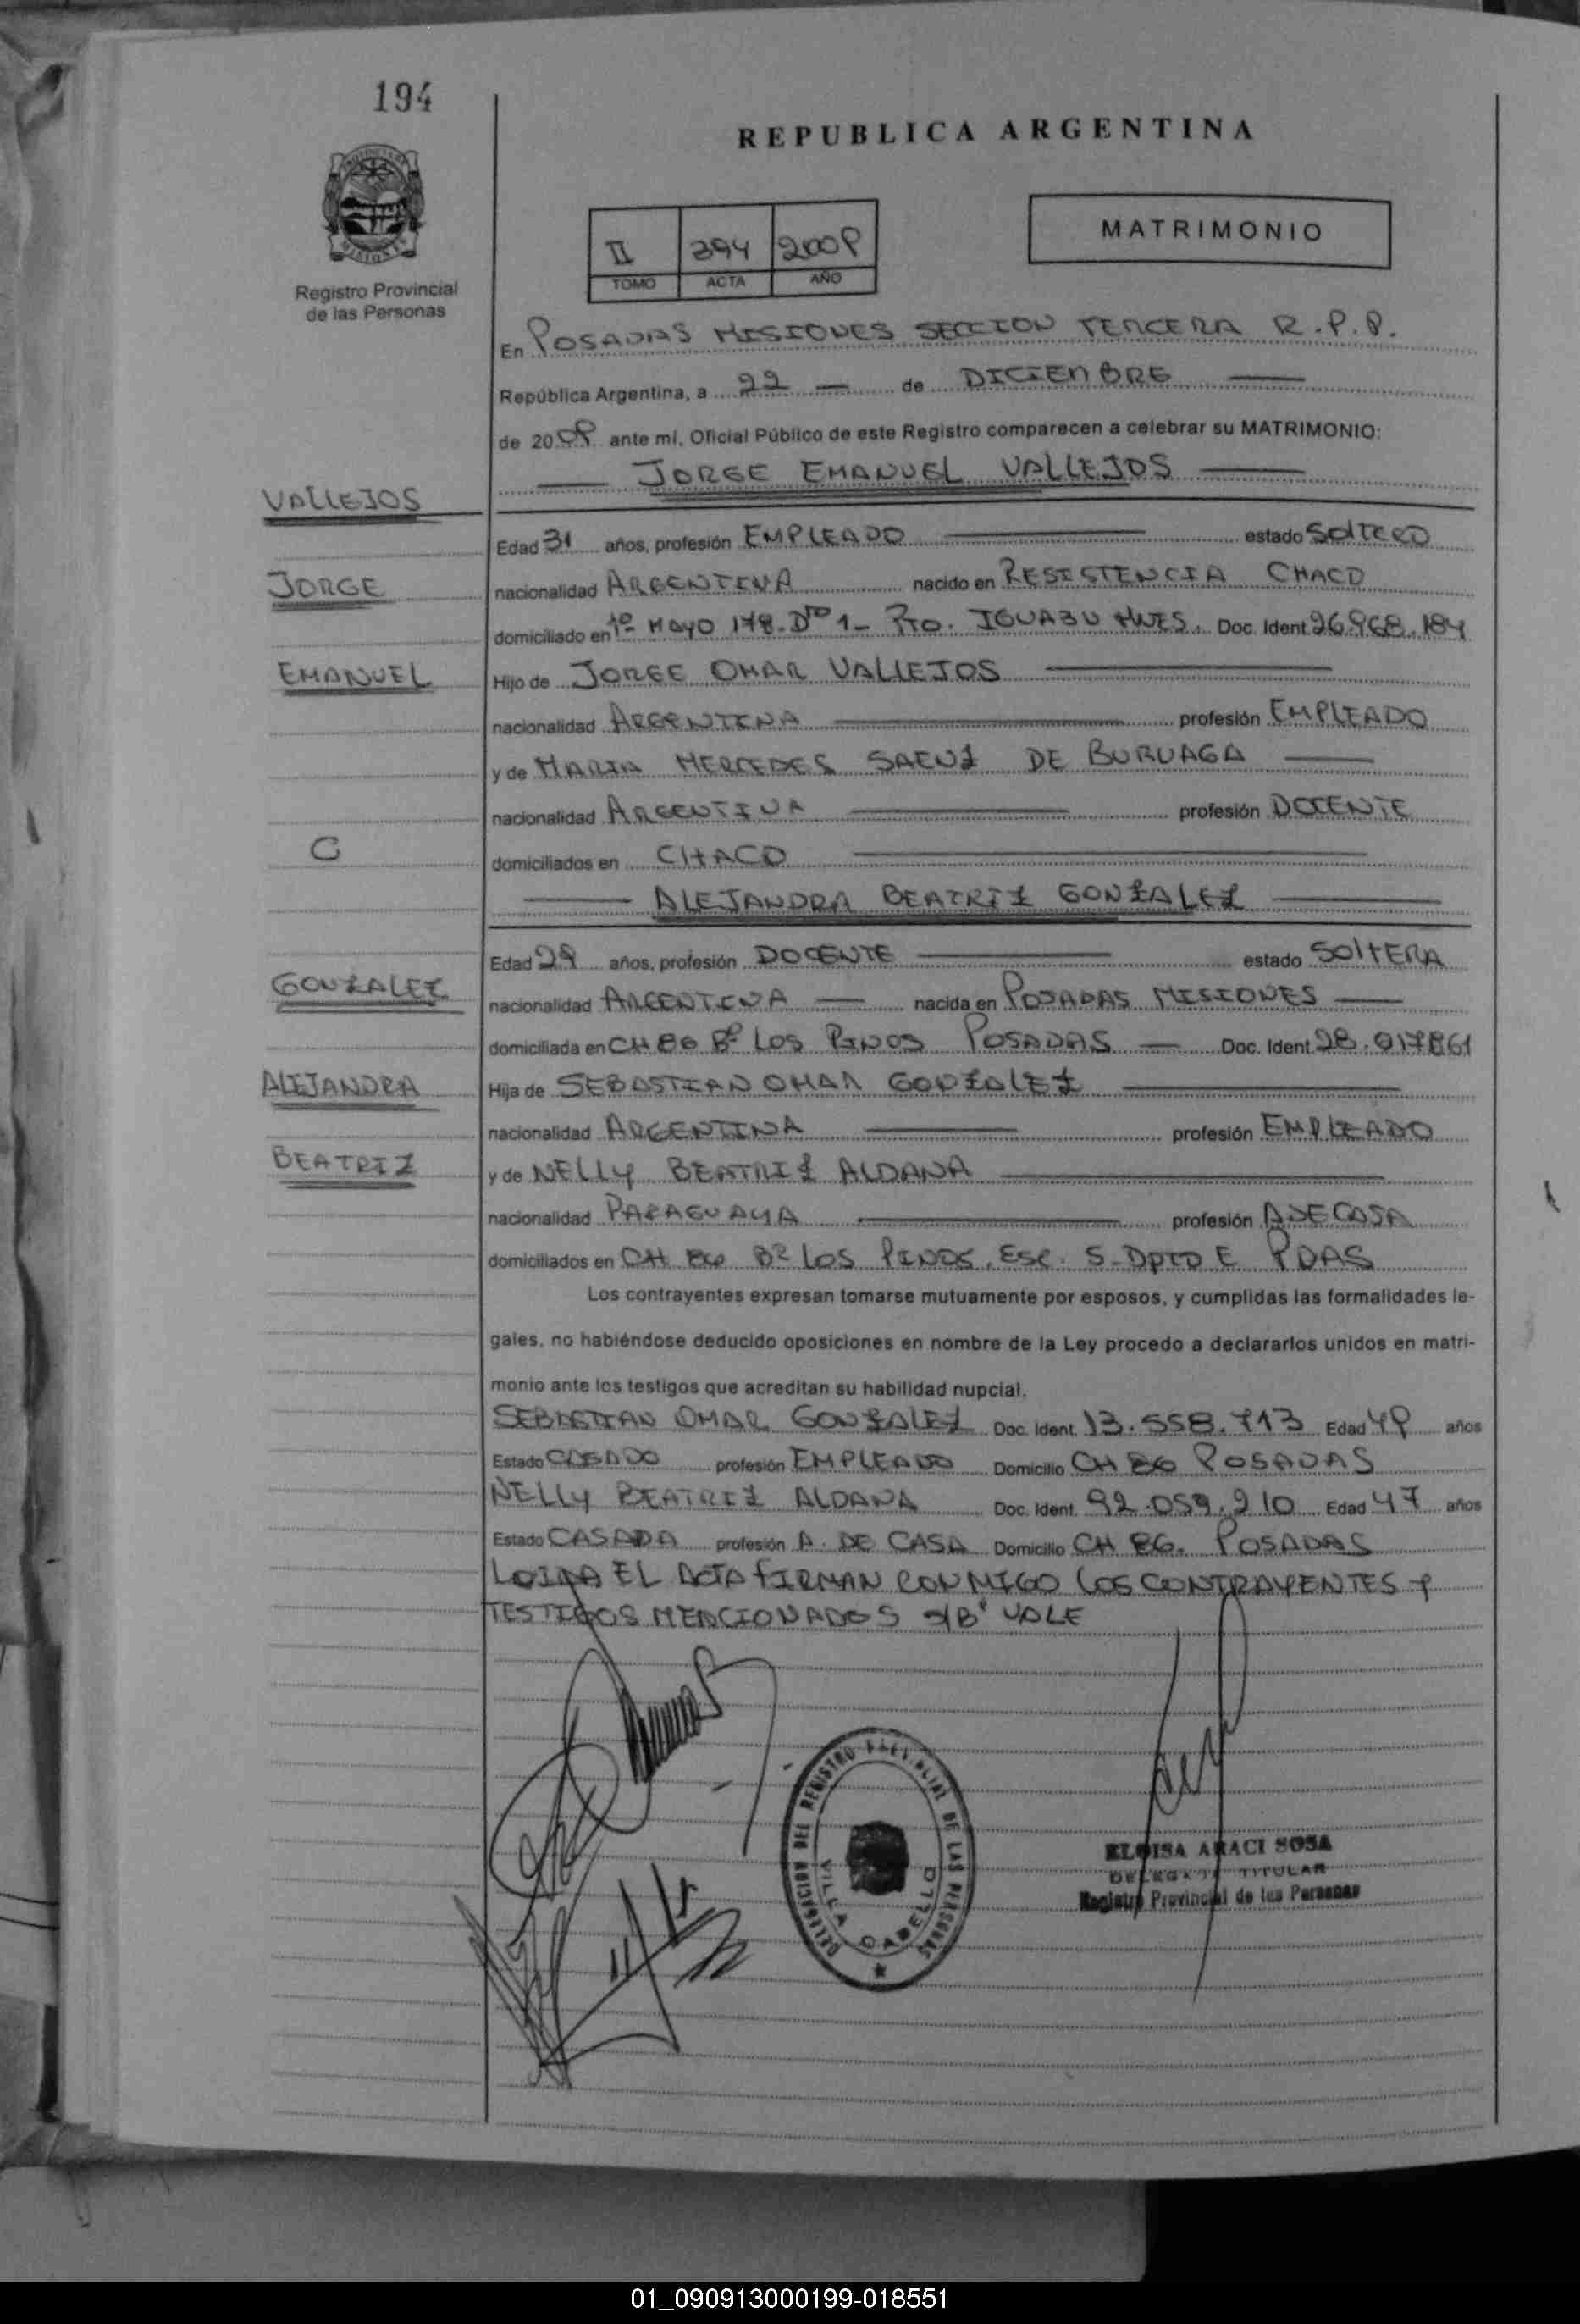 194
REPUBLICA ARGENTINA
MATRIMONIO
II 394
TOMO ACTA AÑO
Registro Provincial
de las Personas
En POSADAS MISIONES SECCION TERCERA R.P.P.
República Argentina, a 22 — de DICIEMBRE —
de 20 ante mí, Oficial Público de este Registro comparecen a celebrar su MATRIMONIO:
— JORGE EMANUEL VALLEJOS —
VALLEJOS
Edad 31 años, profesión EMPLEADO — estado SOLTERO
JORGE
nacionalidad ARGENTINA nacido en RESISTENCIA CHACO
domiciliado en 1º MAYO 178-Dto 1- Pto. IGUAZU MNES. Doc. Ident. 26.968.184
EMANUEL
Hijo de JORGE OMAR VALLEJOS —
nacionalidad ARGENTINA — profesión EMPLEADO
y de MARIA MERCEDES SAENZ DE BURUAGA —
nacionalidad ARGENTINA — profesión DOCENTE
C
domiciliados en CHACO —
— ALEJANDRA BEATRIZ GONZALEZ —
Edad años, profesión DOCENTE — estado SOLTERA
GONZALEZ
nacionalidad ARGENTINA — nacida en POSADAS MISIONES —
domiciliada en CH 86 Bº LOS PINOS POSADAS — Doc. Ident. 28.017861
ALEJANDRA
Hija de SEBASTIAN OMAR GONZALEZ —
nacionalidad ARGENTINA — profesión EMPLEADO
BEATRIZ
y de NELLY BEATRIZ ALDANA —
nacionalidad PARAGUAYA — profesión A DE CASA
domiciliados en CH 86 Bº LOS PINOS, Esc. 5-Dpto E PDAS
Los contrayentes expresan tomarse mutuamente por esposos, y cumplidas las formalidades le-
gales, no habiéndose deducido oposiciones en nombre de la Ley procedo a declararlos unidos en matri-
monio ante los testigos que acreditan su habilidad nupcial.
SEBASTIAN OMAR GONZALEZ Doc. Ident. 13.558.713 Edad años
Estado CASADO profesión EMPLEADO Domicilio CH 86 POSADAS
NELLY BEATRIZ ALDANA Doc. Ident. 92.059.210 Edad 47 años
Estado CASADA profesión A. DE CASA Domicilio CH 86. POSADAS
LEIDA EL ACTA FIRMAN CONMIGO LOS CONTRAYENTES y
TESTIGOS MENCIONADOS VALE
DELEGACION DEL REGISTRO PROVINCIAL DE LAS PERSONAS
VILLA CABELLO
ELOISA ARACI SOSA
DELEGADA TITULAR
Registro Provincial de las Personas
01_090913000199-018551